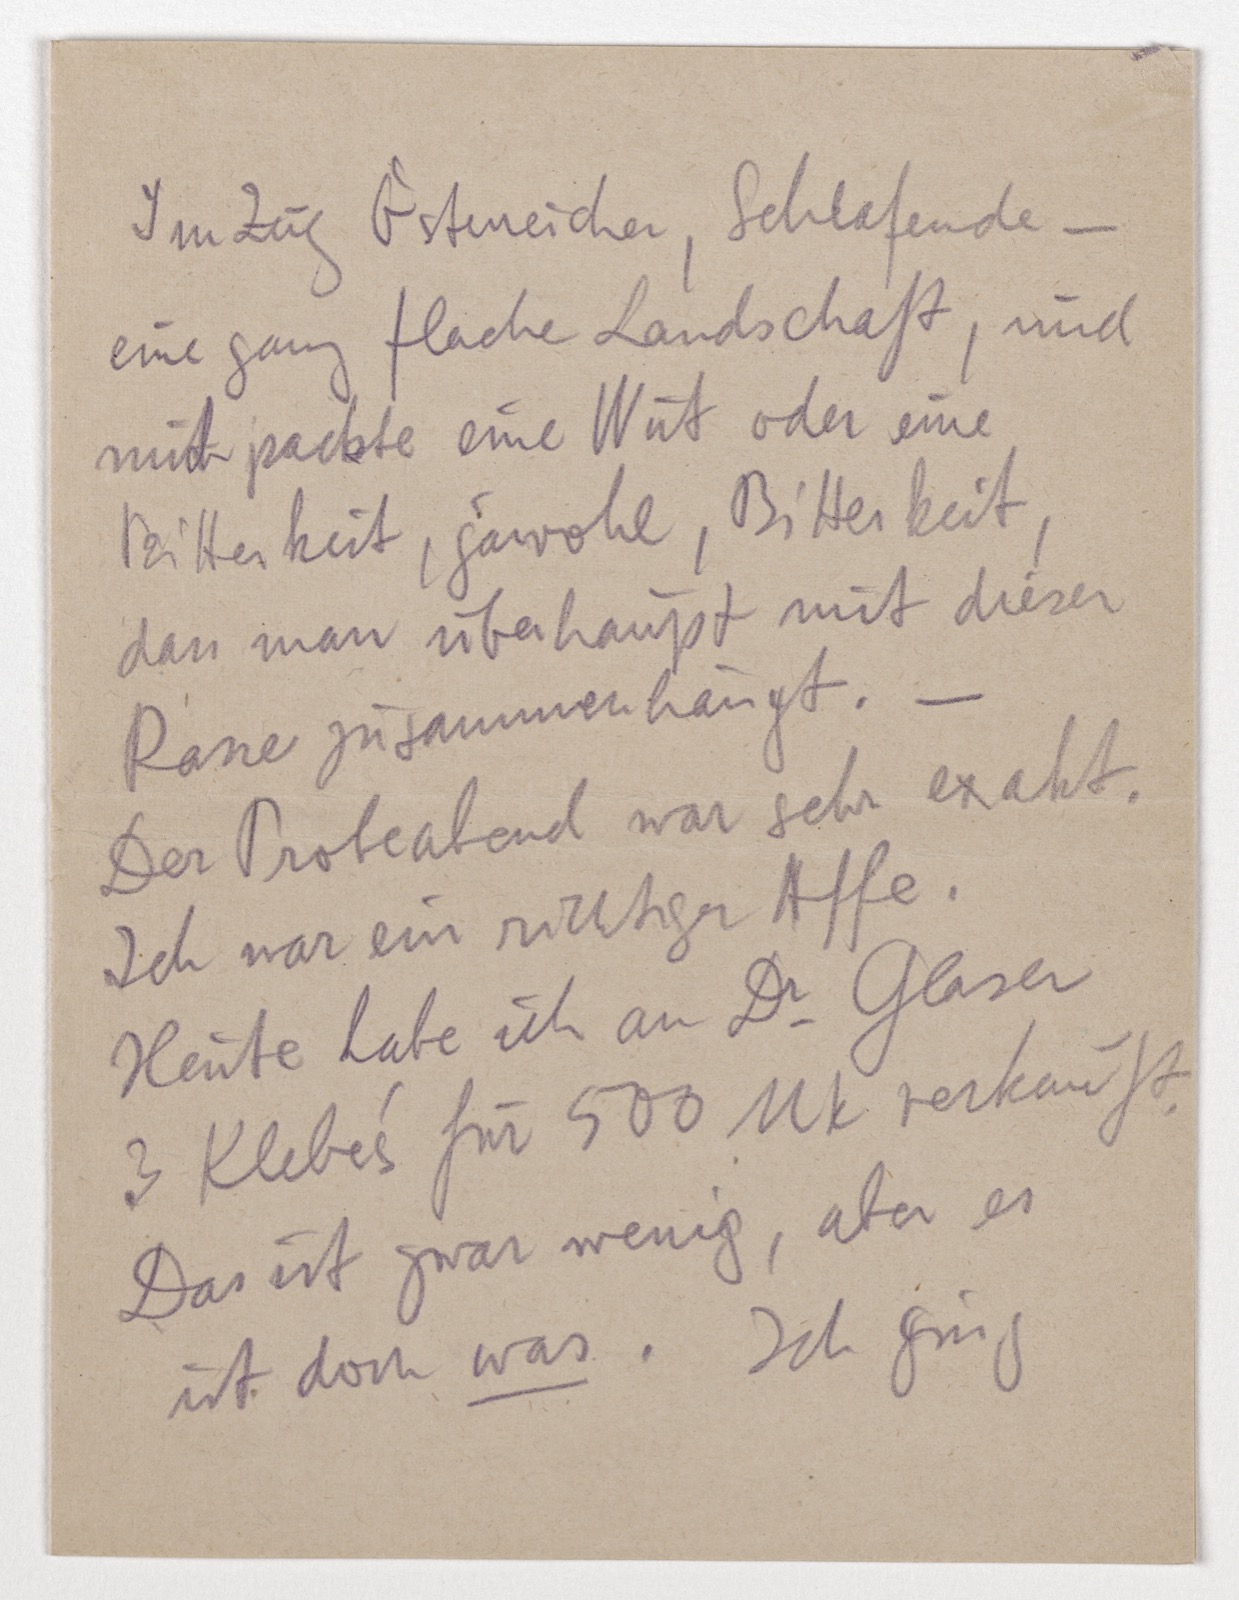 Im Zug Österreicher, Schlafende —
eine ganz flache Landschaft, und
mich packte eine Wut oder eine
Bitterkeit, jawohl, Bitterkeit,
dass man überhaupt mit dieser
Rasse zusammenhängt. —
Der Probeabend war sehr exakt.
Ich war ein richtiger Affe.
Heute habe ich an Dr. Glaser
3 Klebe's für 500 Mk verkauft.
Das ist zwar wenig, aber es
ist doch was. Ich ging